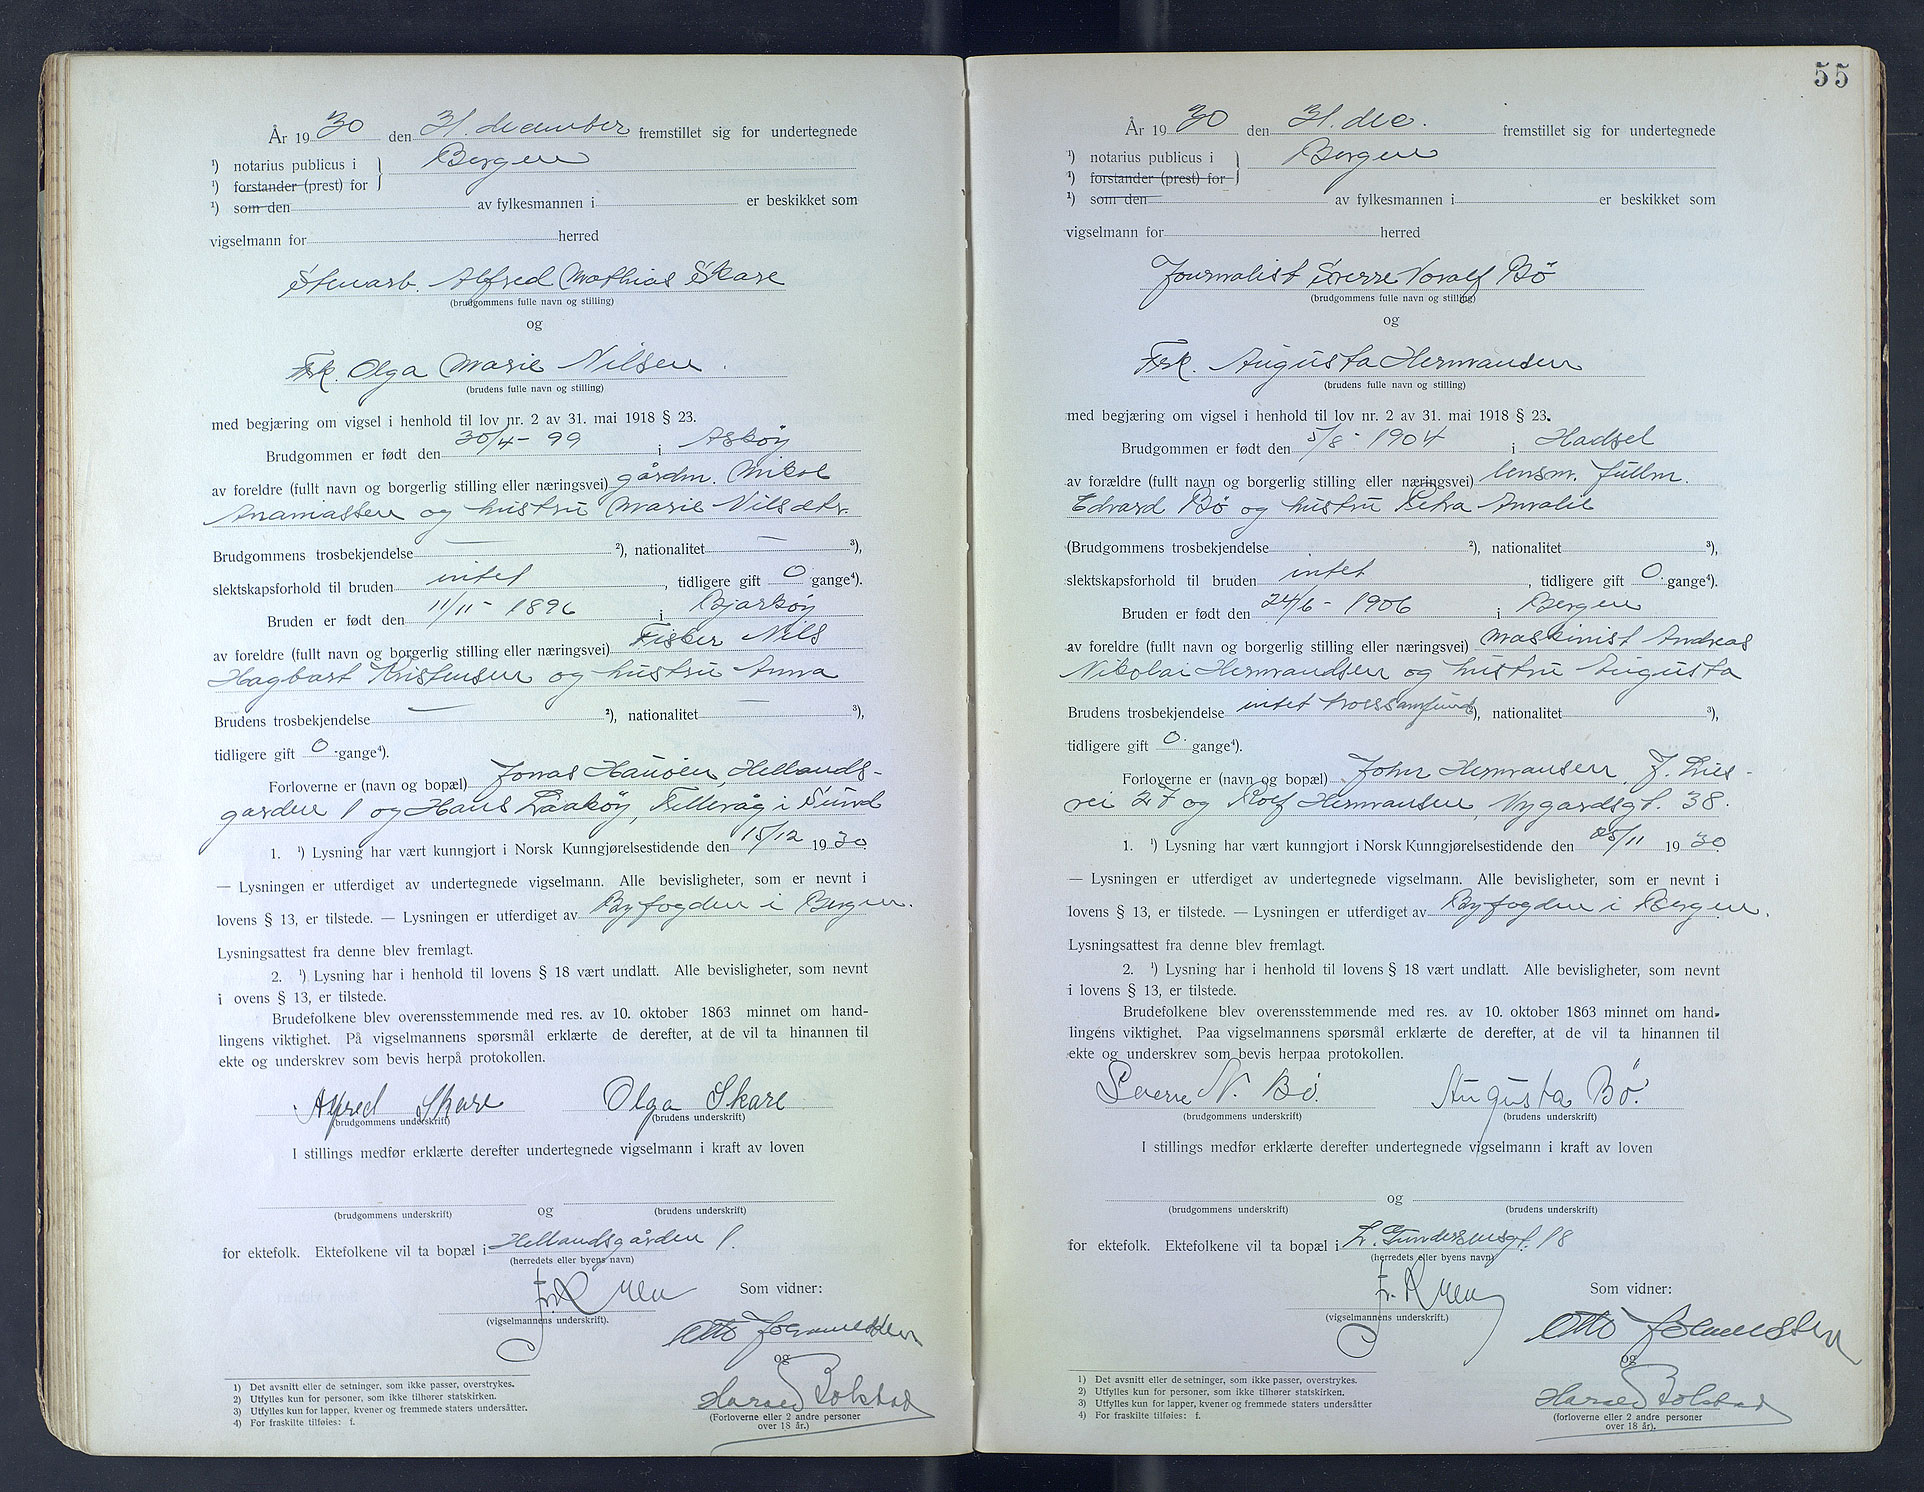 År 1930 den 31. december fremstillet sig for undertegnede
¹) notarius publicus i } Bergen
¹) forstander (prest) for
¹) som den av fylkesmannen i er beskikket som
vigselmann for herred
Stenarb. Alfred Mathias Skare
(brudgommens fulle navn og stilling)
og
Frk. Olga Marie Nilsen.
(brudens fulle navn og stilling)
med begjæring om vigsel i henhold til lov nr. 2 av 31. mai 1918 § 23.
Brudgommen er født den 30/4 - 99 i Askøy
av foreldre (fullt navn og borgerlig stilling eller næringsvei) gårdm. Mikal
Ananiassen og hustru Marie Nilsdtr.
Brudgommens trosbekjendelse — ²), nationalitet — ³),
slektskapsforhold til bruden intet, tidligere gift 0 gange⁴).
Bruden er født den 11/11 - 1896 i Bjarkøy
av foreldre (fullt navn og borgerlig stilling eller næringsvei) Fisker Nils
Hagbart Kristensen og hustru Anna
Brudens trosbekjendelse — ²), nationalitet — ³),
tidligere gift 0 gange⁴).
Forloverne er (navn og bopæl) Jonas Hauøen, Hellands-
garden 1 og Hans Laakøy, Tellevåg i Sund
1. ¹) Lysning har vært kunngjort i Norsk Kunngjørelsestidende den 15/12 1930
— Lysningen er utferdiget av undertegnede vigselmann. Alle bevisligheter, som er nevnt i
lovens § 13, er tilstede. — Lysningen er utferdiget av Byfogden i Bergen.
Lysningsattest fra denne blev fremlagt.
2. ¹) Lysning har i henhold til lovens § 18 vært undlatt. Alle bevisligheter, som nevnt
i ovens § 13, er tilstede.
Brudefolkene blev overensstemmende med res. av 10. oktober 1863 minnet om hand-
lingens viktighet. På vigselmannens spørsmål erklærte de derefter, at de vil ta hinannen til
ekte og underskrev som bevis herpå protokollen.
Alfred Skare Olga Skare
(brudgommens underskrift) (brudens underskrift)
I stillings medfør erklærte derefter undertegnede vigselmann i kraft av loven
og
(brudgommens underskrift) (brudens underskrift)
for ektefolk. Ektefolkene vil ta bopæl i Hellandsgården 1.
(herredets eller byens navn)
Som vidner:
(vigselmannens underskrift).
Otto Johannessen
og
Harald Bolstad
(Forloverne eller 2 andre personer
over 18 år.)
1) Det avsnitt eller de setninger, som ikke passer, overstrykes.
2) Utfylles kun for personer, som ikke tilhører statskirken.
3) Utfylles kun for lapper, kvener og fremmede staters undersåtter.
4) For fraskilte tilføies: f.
55
År 1930 den 31. dec. fremstillet sig for undertegnede
¹) notarius publicus i } Bergen
¹) forstander (prest) for
¹) som den av fylkesmannen i er beskikket som
vigselmann for herred
Journalist Sverre Noralf Bö
(brudgommens fulle navn og stilling)
og
Frk. Augusta Hermansen
(brudens fulle navn og stilling)
med begjæring om vigsel i henhold til lov nr. 2 av 31. mai 1918 § 23.
Brudgommen er født den 5/8 - 1904 i Hadsel
av forældre (fullt navn og borgerlig stilling eller næringsvei) lensm. fullm.
Edvard Bö og hustru Petra Amalie
(Brudgommens trosbekjendelse ²), nationalitet ³),
slektskapsforhold til bruden intet, tidligere gift 0 gange⁴).
Bruden er født den 24/6 - 1906 i Bergen
av foreldre (fullt navn og borgerlig stilling eller næringsvei) maskinist Andreas
Nikolai Hermandsen og hustru Augusta
Brudens trosbekjendelse intet trossamfund ²), nationalitet ³),
tidligere gift 0. gange⁴).
Forloverne er (navn og bopæl) John Hermansen, J. Lies-
vei 27 og Rolf Hermansen, Nygardsgt. 38.
1. ¹) Lysning har vært kunngjort i Norsk Kunngjørelsestidende den 25/11 1930
— Lysningen er utferdiget av undertegnede vigselmann. Alle bevisligheter, som er nevnt i
lovens § 13, er tilstede. — Lysningen er utferdiget av Byfogden i Bergen.
Lysningsattest fra denne blev fremlagt.
2. ¹) Lysning har i henhold til lovens § 18 vært undlatt. Alle bevisligheter, som nevnt
i lovens § 13, er tilstede.
Brudefolkene blev overensstemmende med res. av 10. oktober 1863 minnet om hand-
lingens viktighet. Paa vigselmannens spørsmål erklærte de derefter, at de vil ta hinannen til
ekte og underskrev som bevis herpaa protokollen.
Sverre N. Bö. Augusta Bö.
(brudgommens underskrift) (brudens underskrift)
I stillings medfør erklærte derefter undertegnede vigselmann i kraft av loven
og
(brudgommens underskrift) (brudens underskrift)
for ektefolk. Ektefolkene vil ta bopæl i L. Gundersensgt. 18
(herredets eller byens navn)
Som vidner:
(vigselmannens underskrift.)
Otto Johannessen
og
Harald Bolstad
(forloverne eller 2 andre personer
over 18 år).
1) Det avsnitt eller de setninger, som ikke passer, overstrykes.
2) Utfylles kun for personer, som ikke tilhører statskirken.
3) Utfylles kun for lapper, kvener og fremmede staters undersåtter
4) For fraskilte tilføies: f.